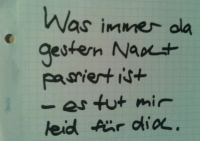 Was immer da
gestern Nacht
passiert ist
– es tut mir
leid für dich.